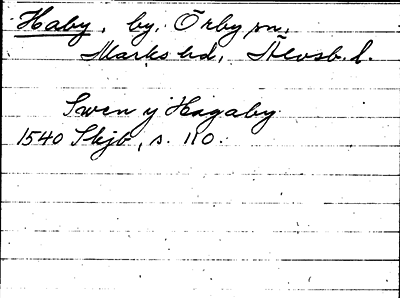 Haby, by, Örby sn,
Marks hd, Älvsb. l.
Swen y Hagaby
1540 Skjb, s. 110.